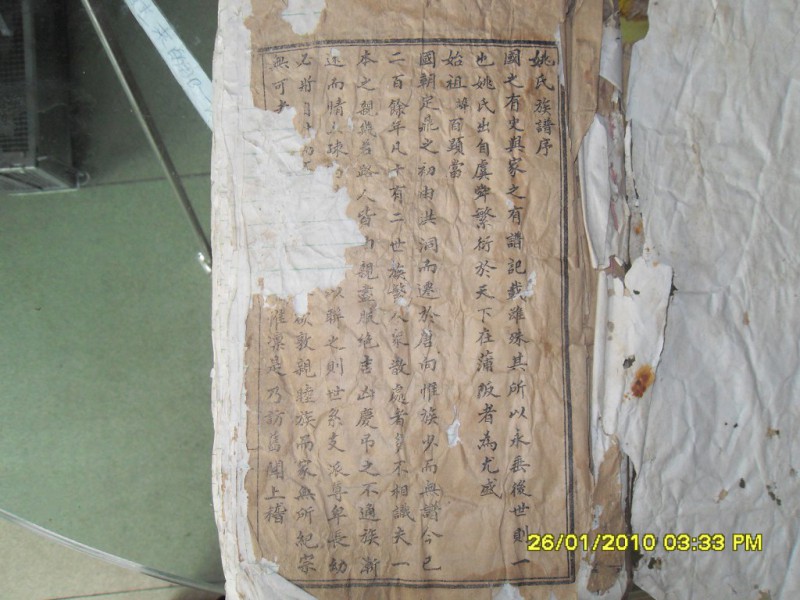 姚氏族譜序
國之有史與家之有譜記載雖殊其所以永垂後世則一
也姚氏出自虞舜繁衍於天下在蒲阪者為尤盛
始祖諱百顯當
國朝定鼎之初由洪洞而遷於唐向惟族少而無譜今已
二百餘年凡十有二世族繁人眾散處者多不相識夫一
本之親幾若路人皆由親盡服絕吉凶慶弔之不通族漸
而情 聯之則世系支派尊卑長幼
必將 敦親睦族而家無所紀宗
無可 是乃訪舊聞上稽
26/01/2010 03:33 PM